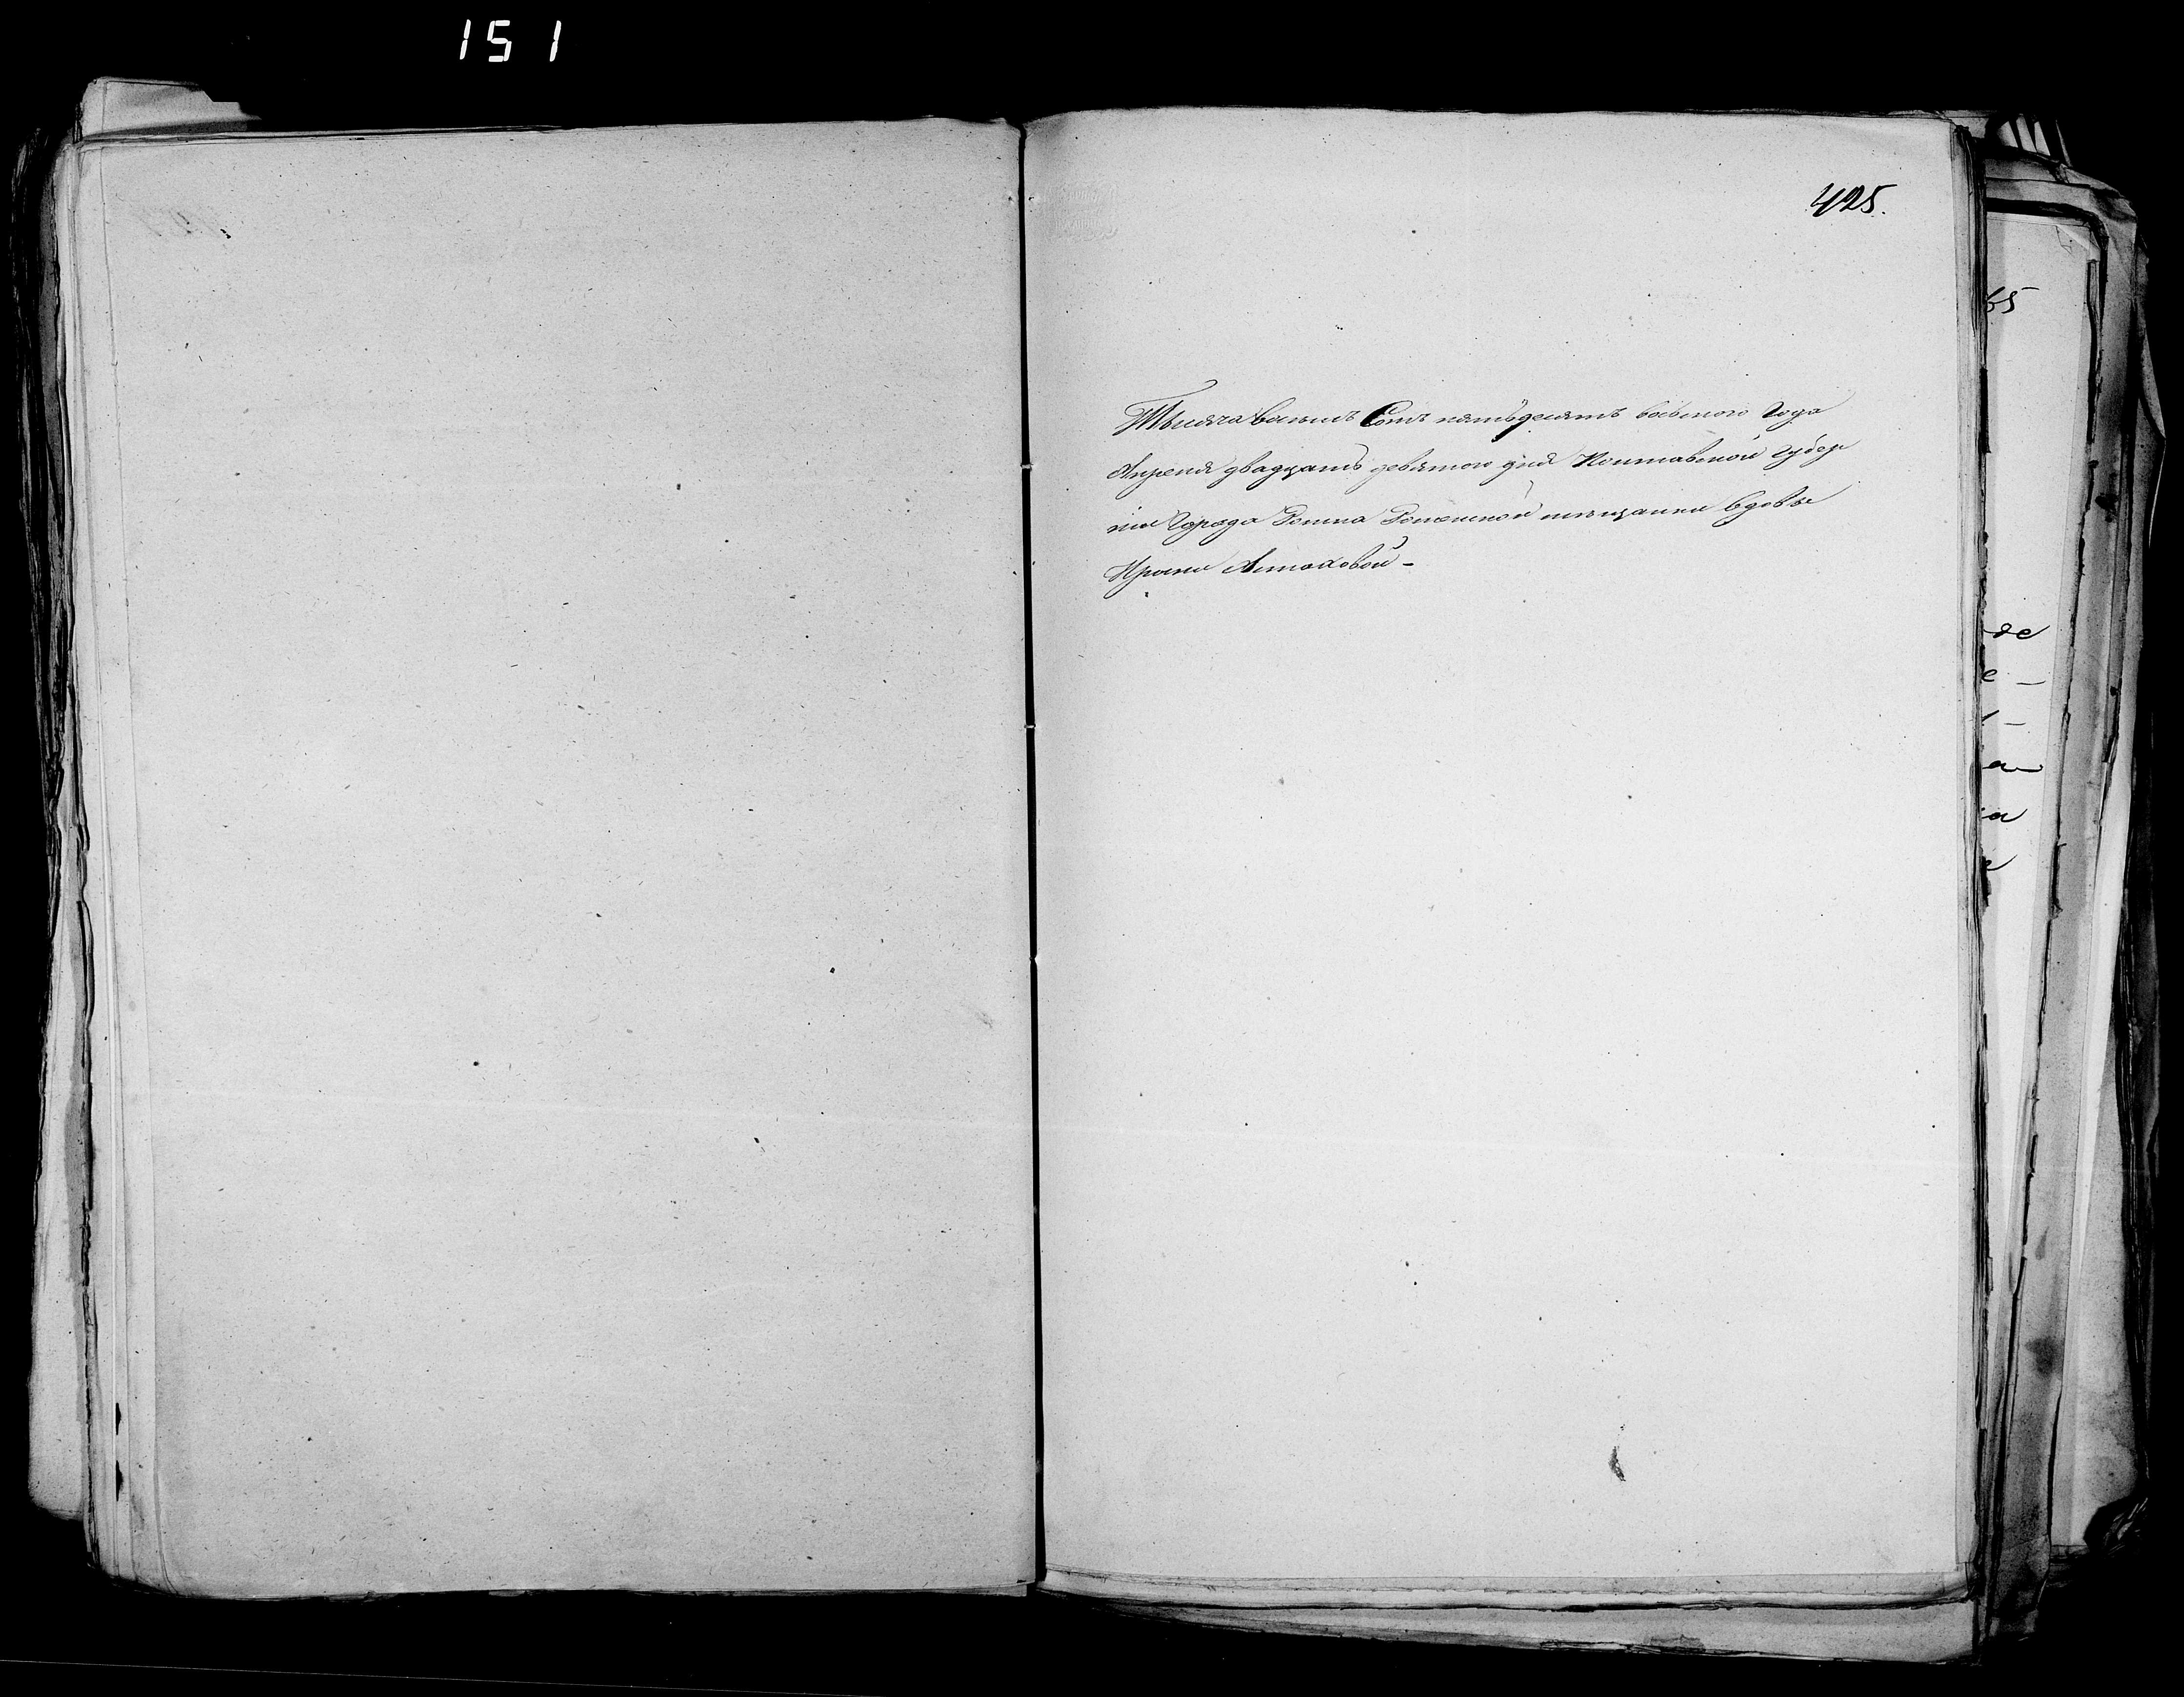 151
425.
Тысяча восемь Сотъ пятьдесятъ восьмого Года
Апреля двадцать девятого дня Полтавской Губер
ніи Города Ромна Роменской мещанки вдовы
Ирины
65